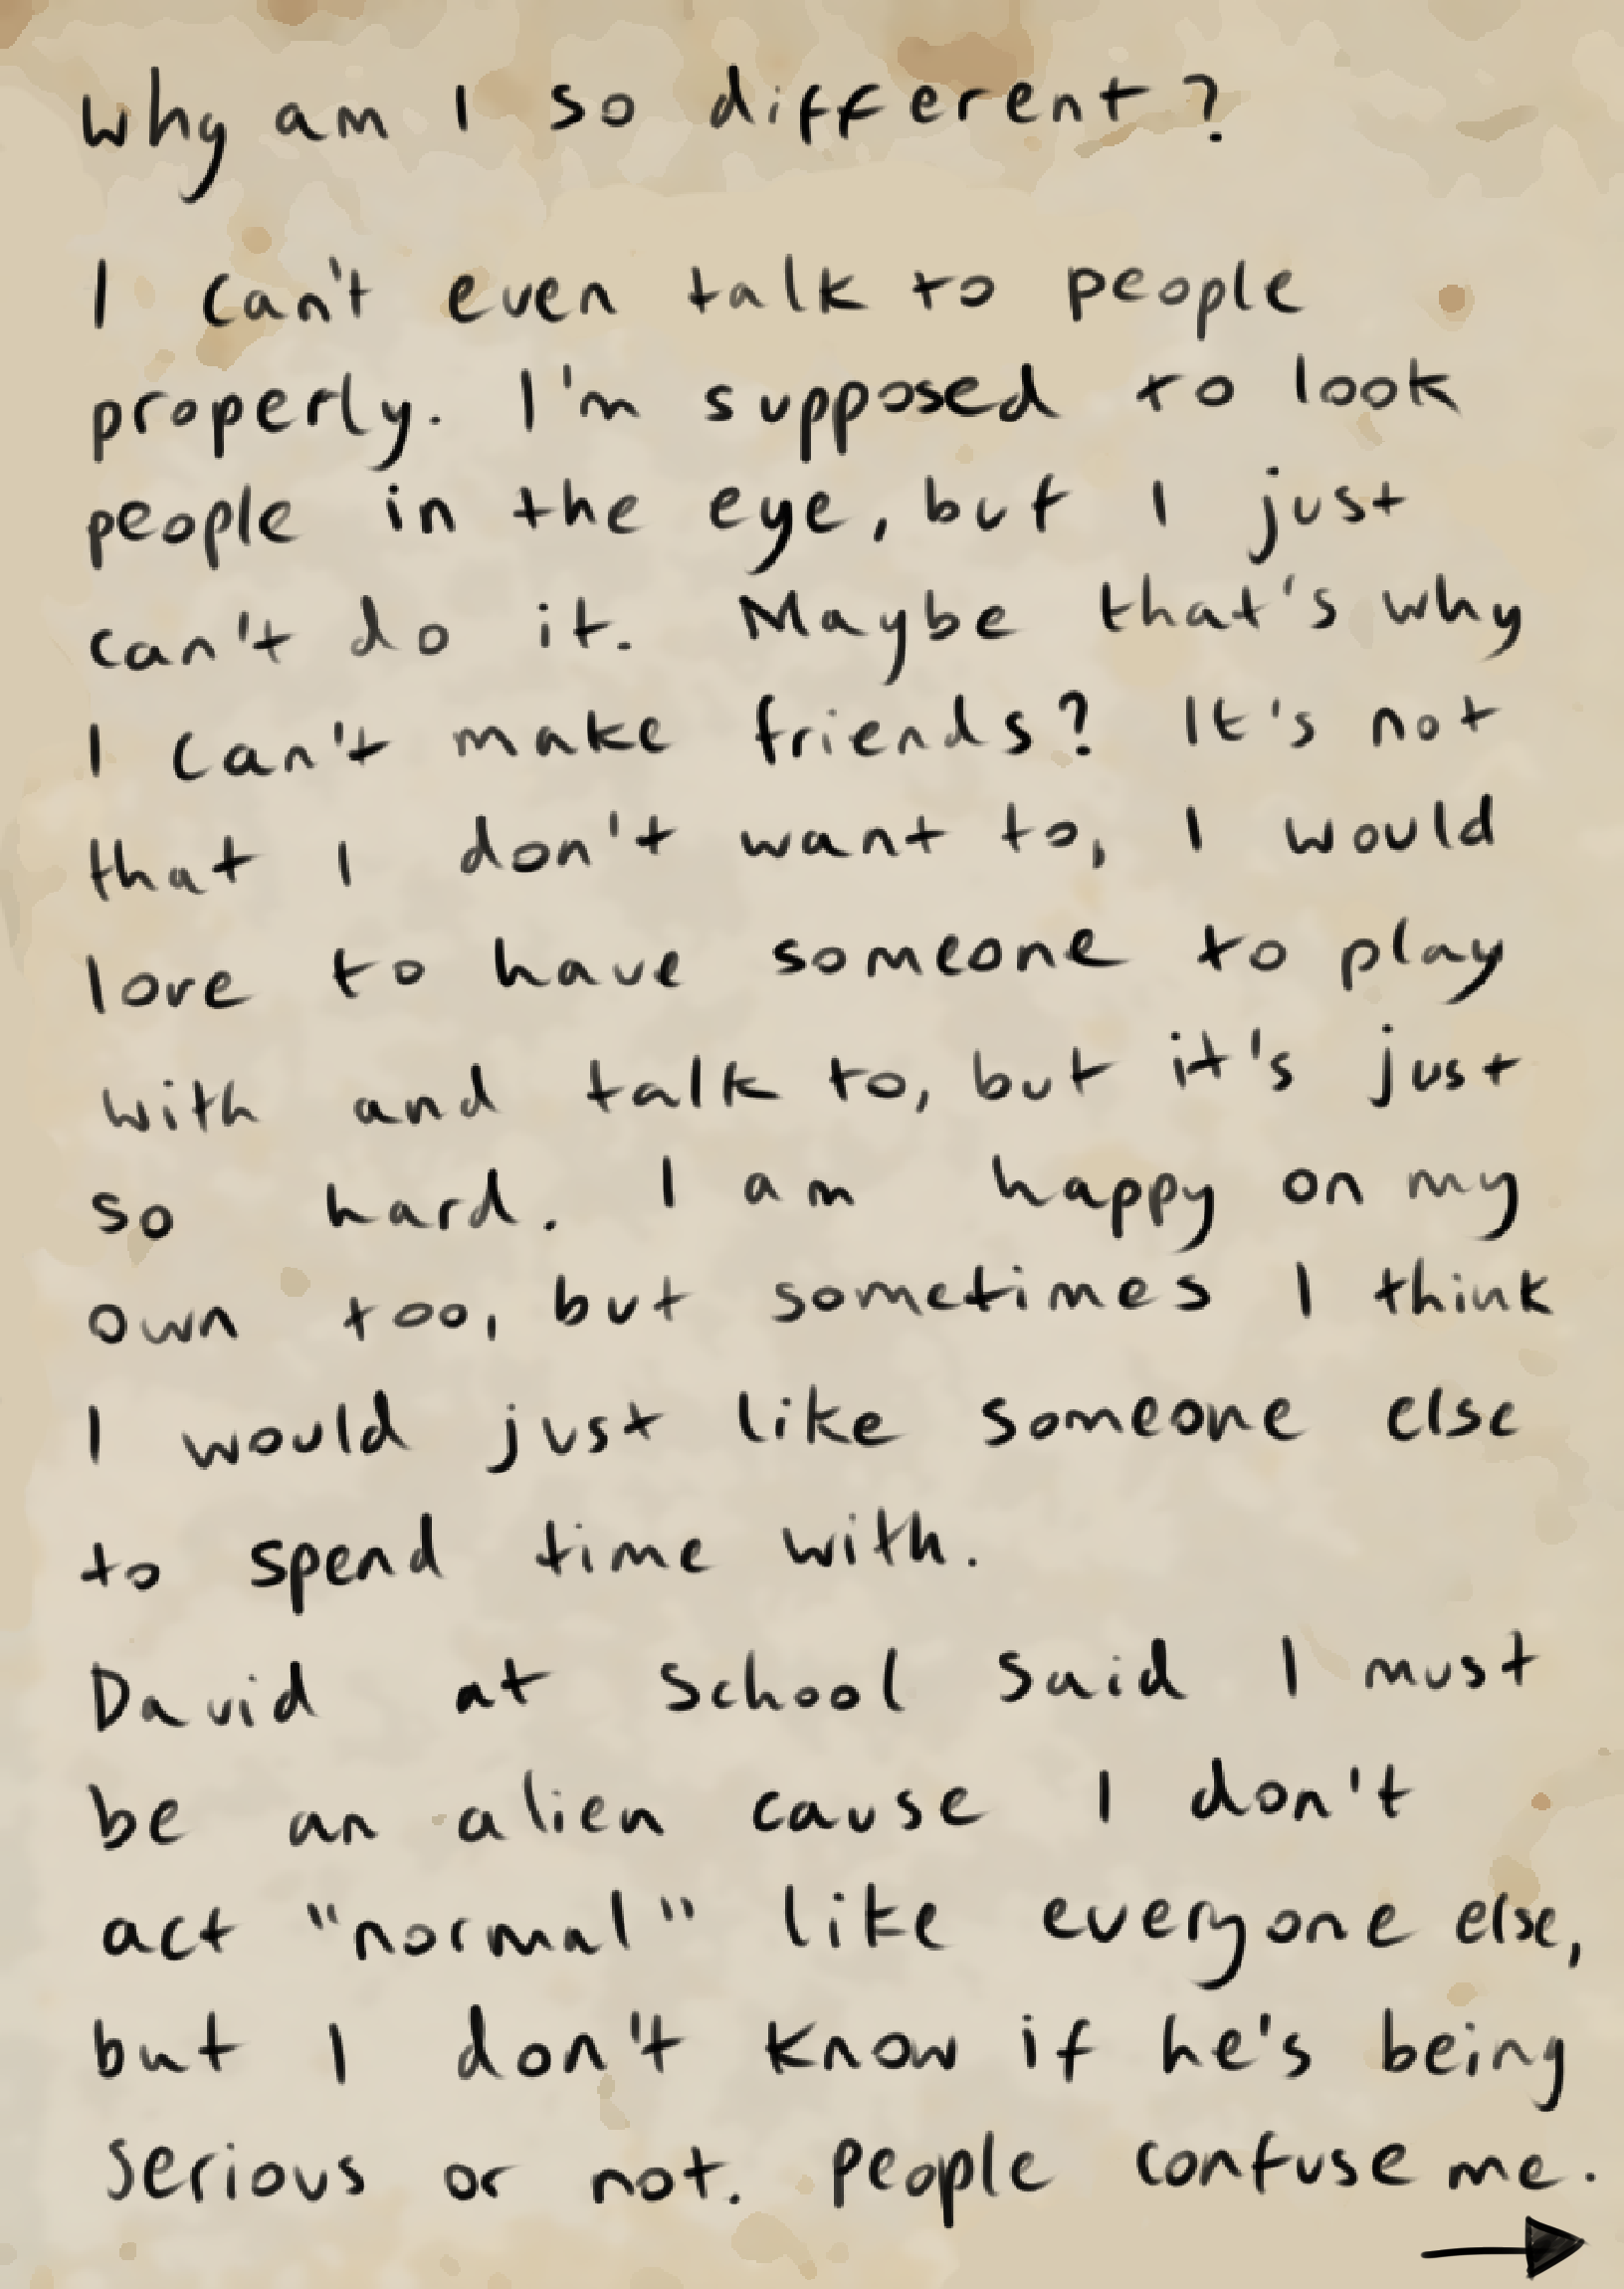 Why am I so different?
I can't even talk to people
properly. I'm supposed to look
people in the eye, but I just
can't do it. Maybe that's why
I can't make friends? It's not
that I don't want to, I would
love to have someone to play
with and talk to, but it's just
so hard. I am happy on my
own too, but sometimes I think
I would just like someone else
to spend time with.
David at school said I must
be an alien cause I don't
act "normal" like everyone else,
but I don't know if he's being
serious or not. People confuse me.